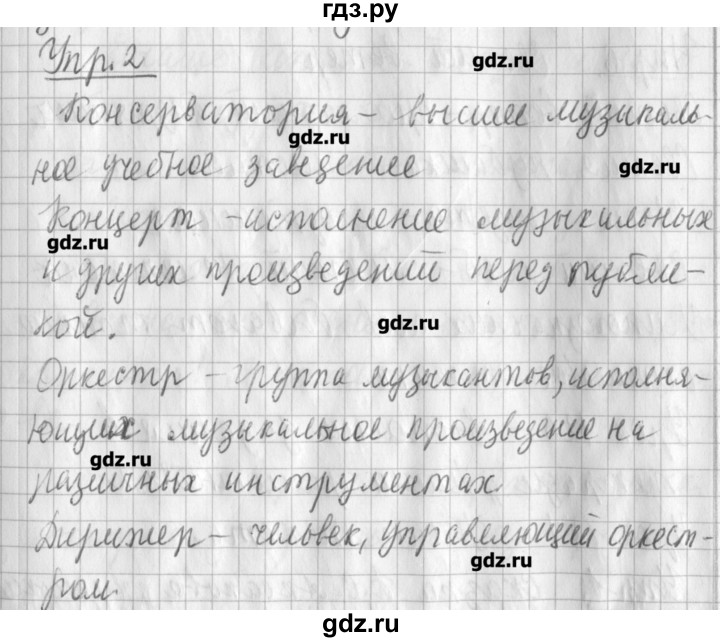 гдз.ру
Упр. 2
gdz.ru
Консерватория – высшее музикаль-
gdz.ru
ное учебное заведение
gdz.ru
Концерт – исполнение музыкальных
gdz.ru
и других произведений перед публи-
кой.
gdz.ru
Оркестр – группа музыкантов, исполня-
ющих музыкальное произведение на
gdz.ru
различных инструментах.
Дирижер – человек, управляющий оркест-
gdz.ru
ром.
gdz.ru